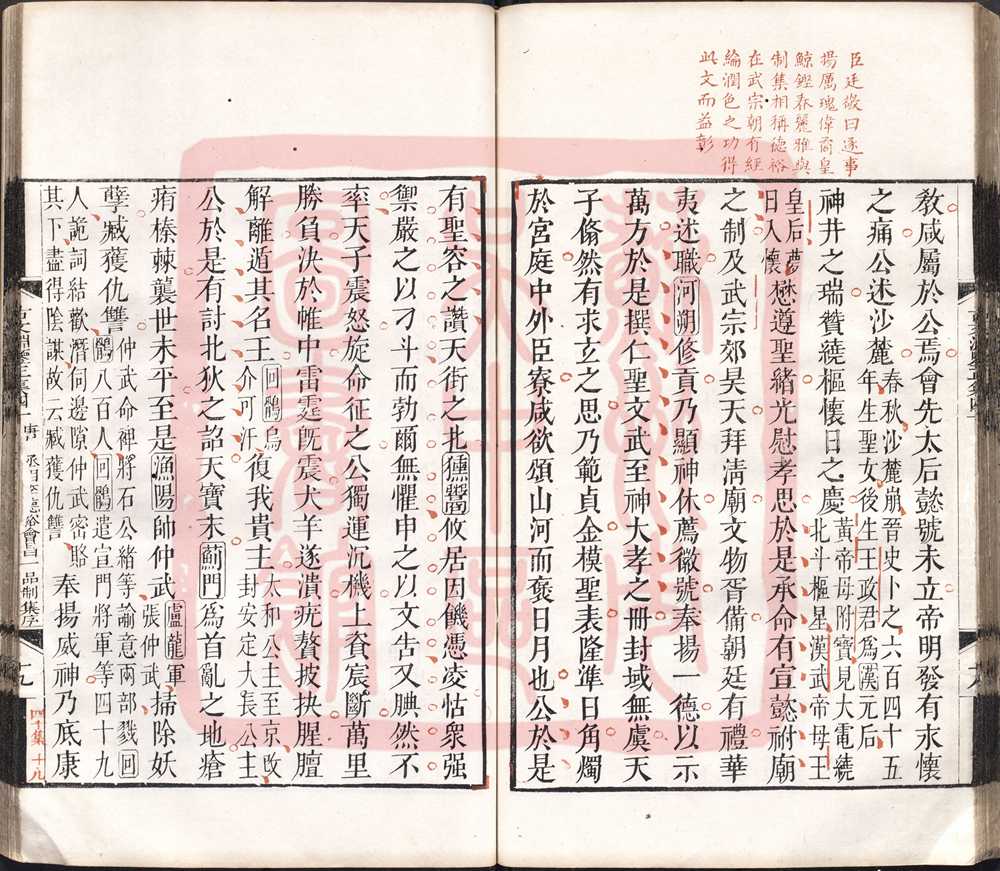 臣廷敬曰逐事
揚厲瑰偉矞皇
鯨鏗春麗雅與
制集相稱德裕
在武宗朝有經
綸潤色之功得
此文而益彰
敎咸屬於公焉會先太后懿號未立帝明發有永懷
之痛公述沙麓春秋沙麓崩晉史卜之六百四十五
年生聖女後生王政君爲漢元后
神井之瑞贊繞樞懷日之慶黃帝母附寶見大電繞
北斗樞星漢武帝母王
皇后夢
日入懷懋遵聖緒光慰孝思於是承命有宣懿祔廟
之制及武宗郊昊天拜淸廟文物胥備朝廷有禮華
夷述職河朔修貢乃顯神休薦徽號奉揚一德以示
萬方於是撰仁聖文武至神大孝之冊封域無虞天
子翛然有求立之思乃範貞金模聖表隆準日角燭
於宮庭中外臣寮咸欲頌山河而褒日月也公於是
有聖容之讚天街之北獯鬻攸居因饑憑凌怙衆强
禦嚴之以刁斗而勃爾無懼申之以文告又腆然不
率天子震怒旋命征之公獨運沉機上弇宸斷萬里
勝負決於帷中雷霆旣震犬羊遂潰疣贅披抉腥膻
解離遁其名王回鶻烏
介可汗復我貴主太和公主至京改
封安定大長公主
公於是有討北狄之詔天寶末薊門爲首亂之地瘡
痏榛棘襲世未平至是漁陽帥仲武盧龍軍
張仲武掃除妖
孽臧獲仇讐仲武命裨將石公緒等諭意兩部戮回
鶻八百人回鶻遣宣門將軍等四十九
人詭詞結歡潛伺邊隙仲武密賂
其下盡得陰謀故云臧獲仇讐奉揚威神乃底康
唐
品制集序
十九
四十集 十九